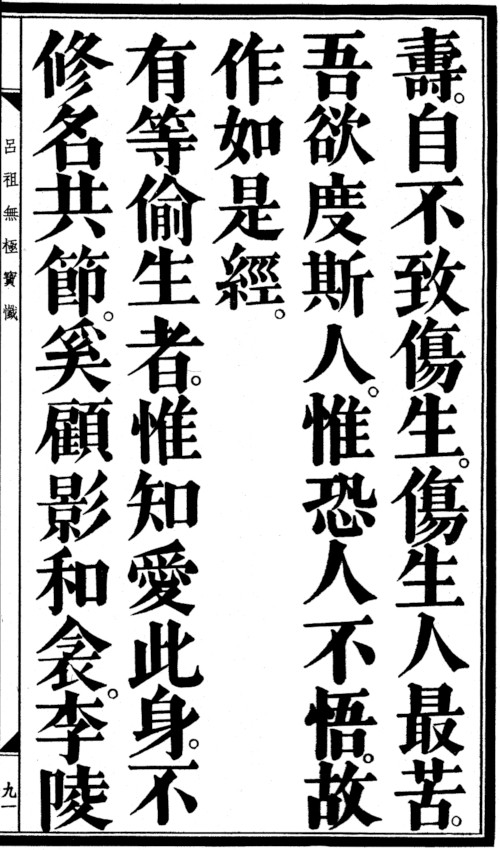 壽。自不致傷生。傷生人最苦。
吾欲度斯人。惟恐人不悟。故
作如是經。
有等偷生者。惟知愛此身。不
修名共節。奚顧影和衾。李陵
呂祖無極寶懺
九一